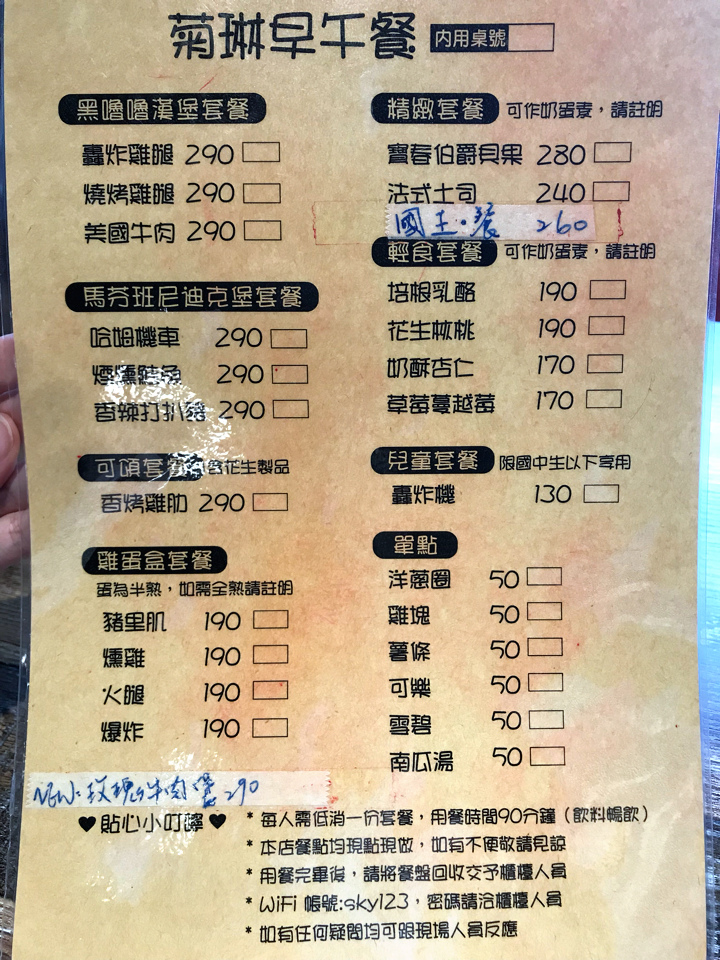 菊琳早午餐 內用桌號
黑嚕嚕漢堡套餐
轟炸雞腿 290
燒烤雞腿 290
美國牛肉 290
馬芬班尼迪克堡套餐
哈姆機車 290
煙燻鮭魚 290
香辣打扒豬 290
可頌套餐 含花生製品
香烤雞肋 290
雞蛋盒套餐
蛋為半熟，如需全熟請註明
豬里肌 190
燻雞 190
火腿 190
爆炸 190
NEW: 玫瑰牛肉堡 290
精緻套餐 可作奶蛋素，請註明
寶春伯爵貝果 280
法式土司 240
國王餐 260
輕食套餐 可作奶蛋素，請註明
培根乳酪 190
花生核桃 190
奶酥杏仁 170
草莓蔓越莓 170
兒童套餐 限國中生以下享用
轟炸機 130
單點
洋蔥圈 50
雞塊 50
薯條 50
可樂 50
雪碧 50
南瓜湯 50
♥貼心小叮嚀♥
* 每人需低消一份套餐，用餐時間90分鐘（飲料暢飲）
* 本店餐點均現點現做，如有不便敬請見諒
* 用餐完畢後，請將餐盤回收交予櫃檯人員
* WiFi 帳號:sky123，密碼請洽櫃檯人員
* 如有任何疑問均可跟現場人員反應